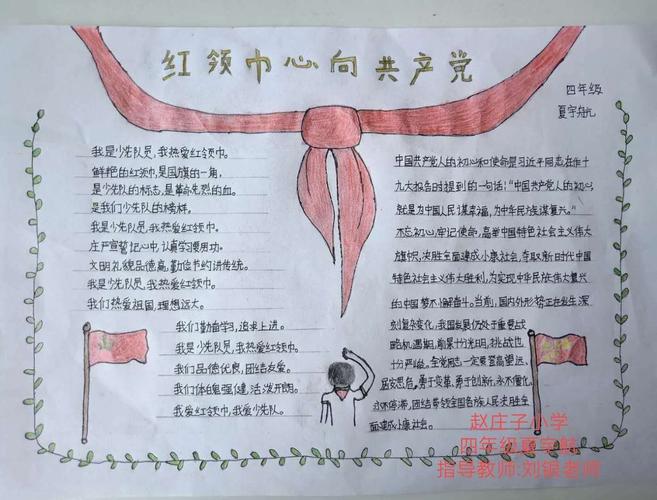 红领巾心向共产党
四年级
夏宇航
我是少先队员,我热爱红领巾。
鲜艳的红领巾,是国旗的一角,
是少先队的标志,是革命先烈的血。
是我们少先队的榜样。
我是少先队员,我热爱红领巾。
庄严宣誓记心中,认真学习要用功。
文明礼貌品德高,勤俭节约讲传统。
我是少先队员,我热爱红领巾。
我们热爱祖国,理想远大。
我们勤奋学习,追求上进。
我是少先队员,我热爱红领巾。
我们品德优良,团结友爱。
我们体魄强健,活泼开朗。
我爱红领巾,我爱少先队。
中国共产党人的初心和使命是习近平同志在作十
九大报告时提到的一句话:“中国共产党人的初心
就是为中国人民谋幸福,为中华民族谋复兴。”
不忘初心,牢记使命,高举中国特色社会主义伟大
旗帜,决胜全面建成小康社会,夺取新时代中国
特色社会主义伟大胜利,为实现中华民族伟大复兴
的中国梦不懈奋斗。当前,国内外形势正在发生深
刻复杂变化,我国发展仍处于重要战
略机遇期,前景十分光明,挑战也
十分严峻。全党同志一定要登高望远、
居安思危,勇于变革、勇于创新,永不僵化、
永不停滞,团结带领全国各族人民决胜全
面建成小康社会。
赵庄子小学
四年级夏宇航
指导教师:刘银老师